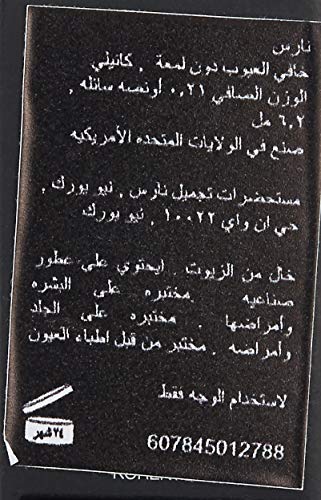 نارس
خافي العيوب دون لمعة , كانيلي
الوزن الصافي ٠,٢١ أونصه سائله ,
٦,٢ مل
صنع في الولايات المتحده الأمريكيه
مستحضرات تجميل نارس , نيو يورك ,
جي ان واي ١٠٠٢٢ , نيو يورك
خال من الزيوت . ايحتوي على عطور
صناعيه . مختبره على البشره
وأمراضها . مختبره على الجلد
وأمراضه . مختبر من قبل اطباء العيون
لاستخدام الوجه فقط
٢٤ شهر
607845012788